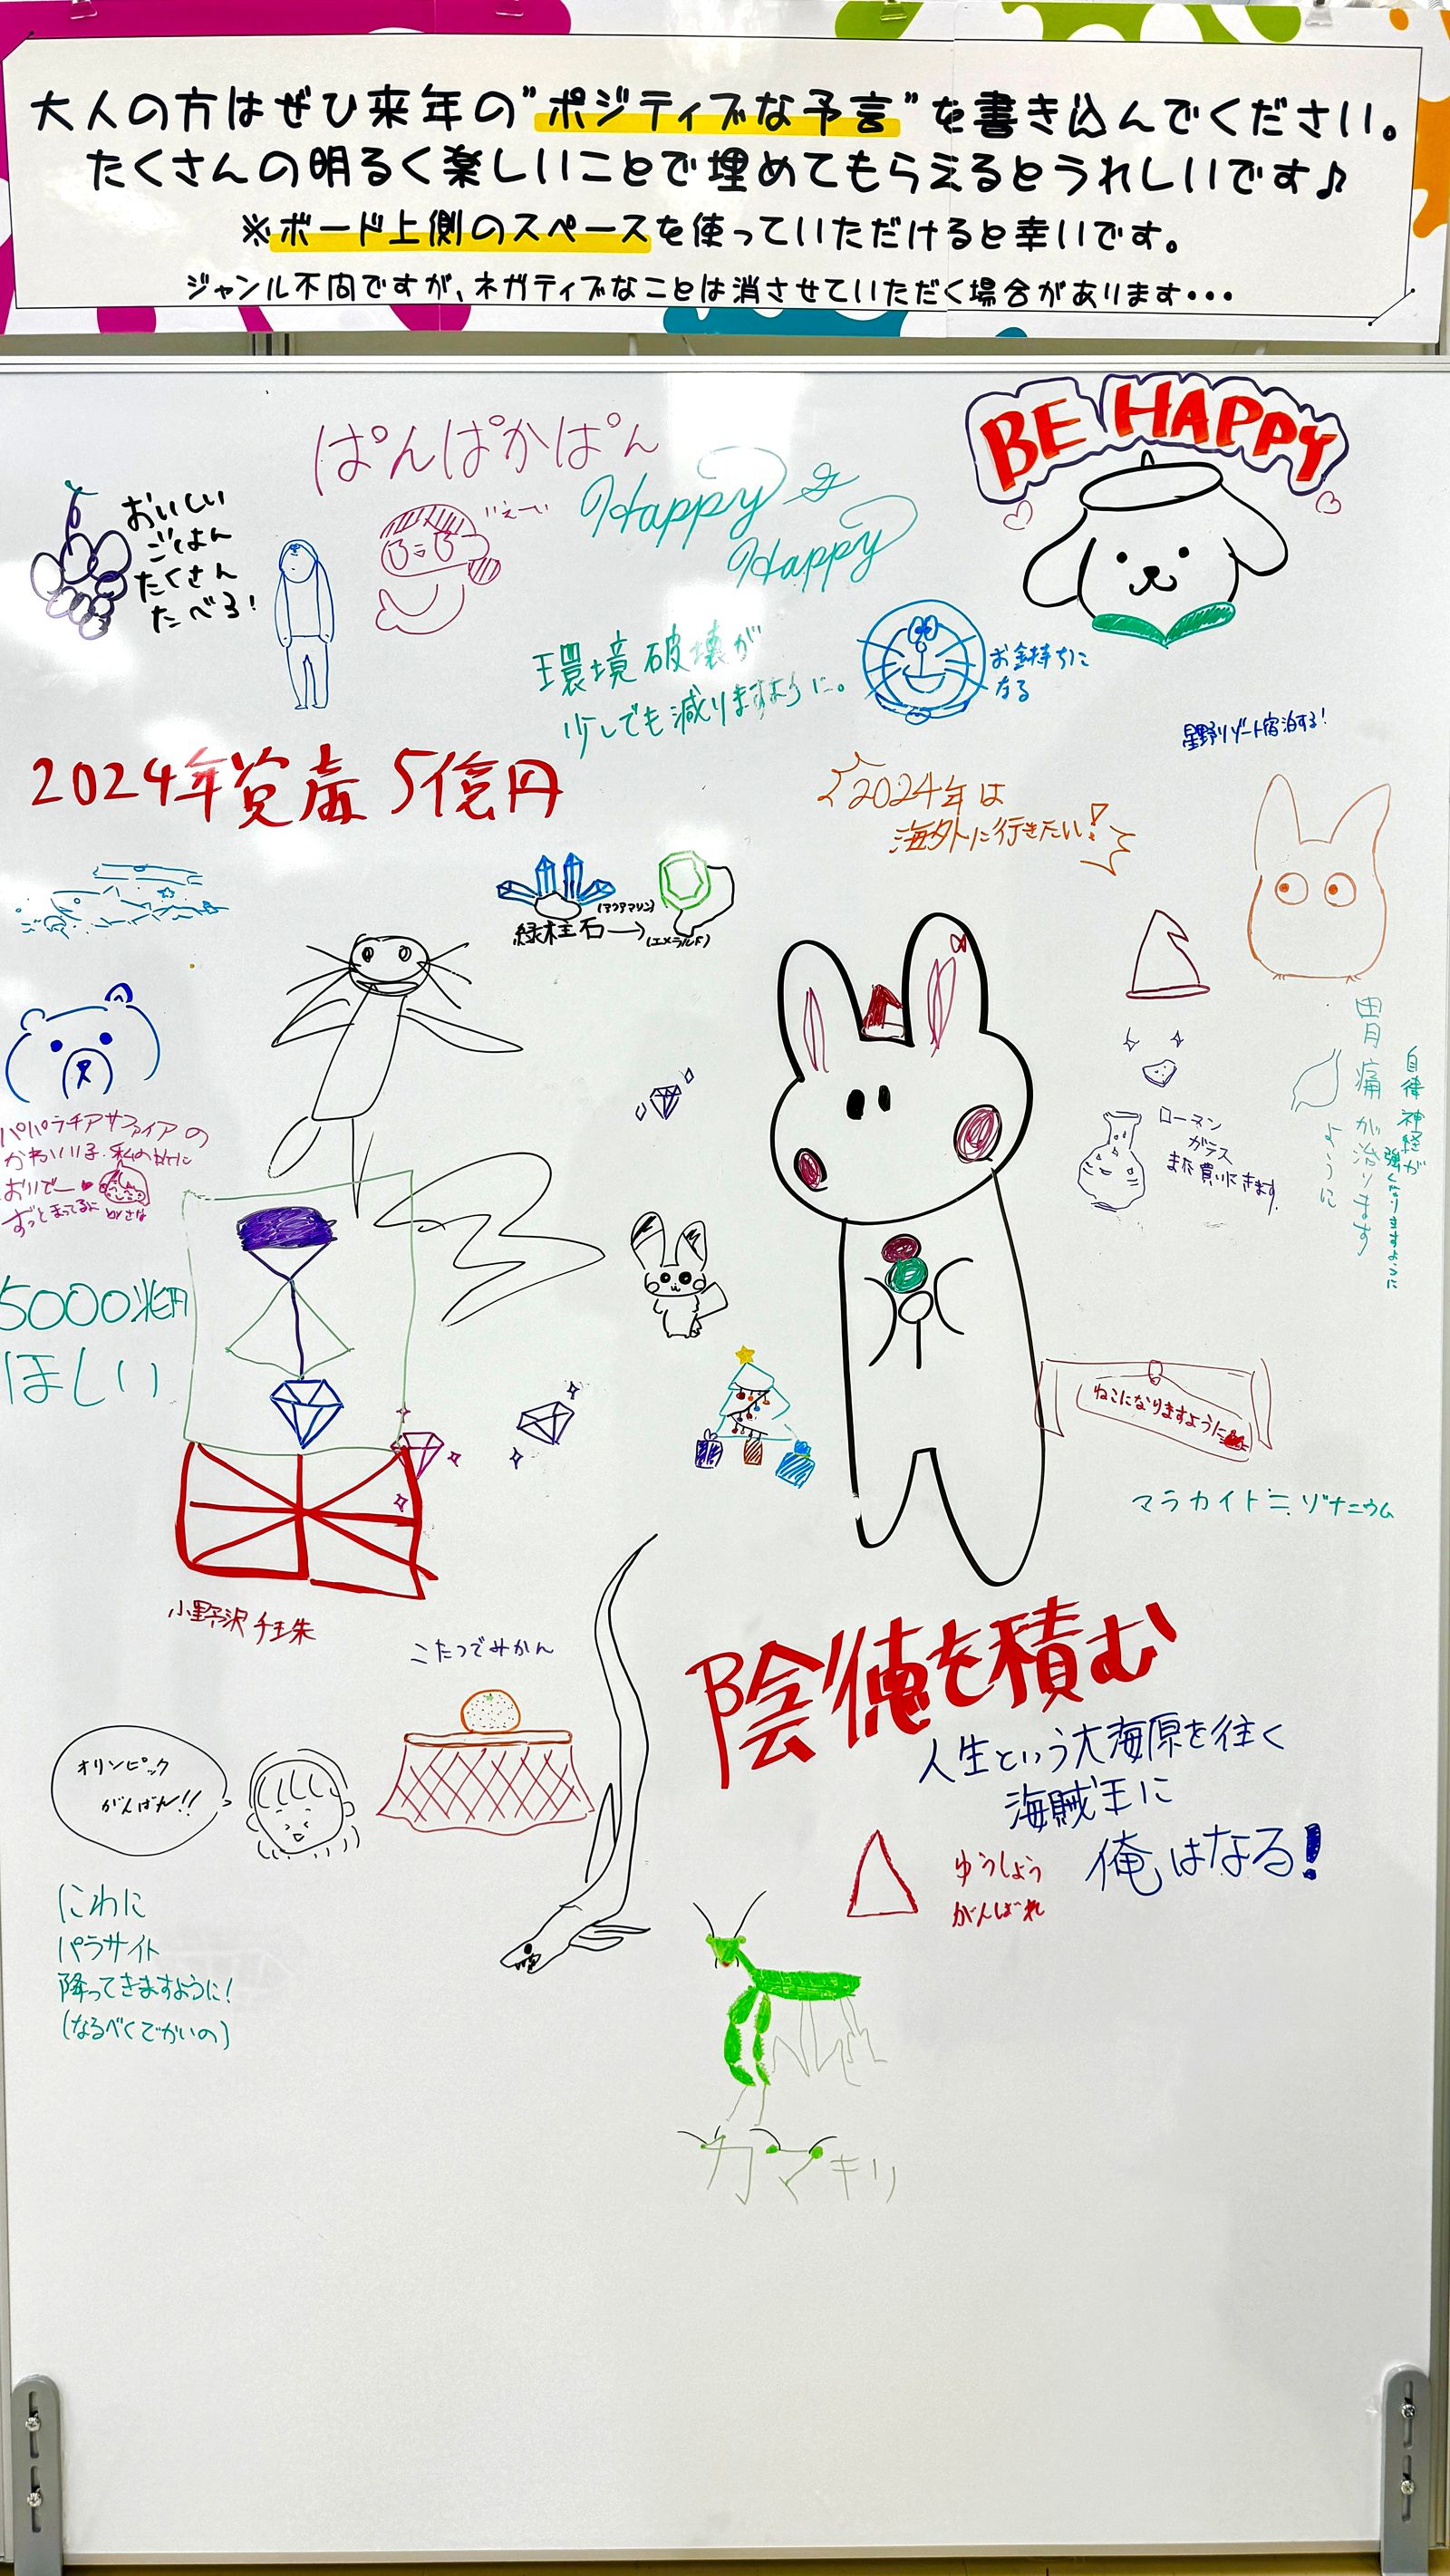 大人の方はぜひ来年の"ポジティブな予言"を書き込んでください。
たくさんの明るく楽しいことで埋めてもらえるとうれしいです♪
※ボード上側のスペースを使っていただけると幸いです。
ジャンル不問ですが、ネガティブなことは消させていただく場合があります・・・
BE HAPPY
ぱんぱかぱん
いえーい
Happy &
Happy
おいしい
ごはん
たくさん
たべる!
環境破壊が
少しでも減りますように。
お金持ちに
なる
星野リゾート宿泊する!
2024年資産 5億円
2024年は
海外に行きたい!
(アクアマリン)
緑柱石→
(エメラルド)
胃痛が治ります
ように
自律神経が
強くなりますように
ローマン
ガラス
また買いにきます
パパラチアサファイアの
かわいい子、私の所に
おいでー♥
ずっとまってるに byさな
5000兆円
ほしい
ねこになりますように
マラカイト≒ゾナニウム
小野沢 千珠
こたつでみかん
陰徳を積む
人生という大海原を往く
海賊王に
俺はなる!
オリンピック
がんばれ!!
ゆうしょう
がんばれ
にわに
パラサイト
降ってきますように!
(なるべくでかいの)
カマキリ